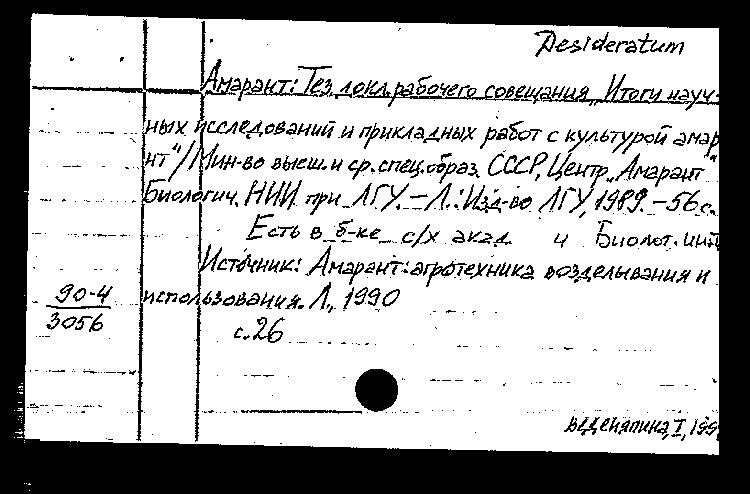 Desideratum
Амарант: Тез. докл. рабочего совещания „Итоги науч-
ных исследований и прикладных работ с культурой амар
нт"/Мин-во высш. и ср. спец. образ. СССР, Центр „Амарант"
Биологич. НИИ при ЛГУ. – Л.: Изд-во ЛГУ, 1989. – 56 с.
Есть в б-ке с/х акад. и Биолог. инт
Источник: Амарант: агротехника возделывания и
90-4 использования. Л., 1990
3056
с. 26
Веденяпина, I, 199